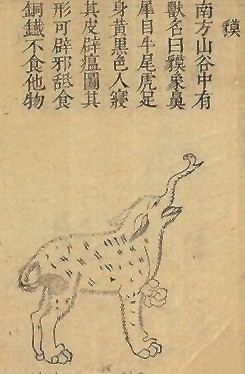 獏
南方山谷中有
獸名曰獏象鼻
犀目牛尾虎足
身黄黑色人寢
其皮辟瘟圖其
形可辟邪舐食
銅鐵不食他物